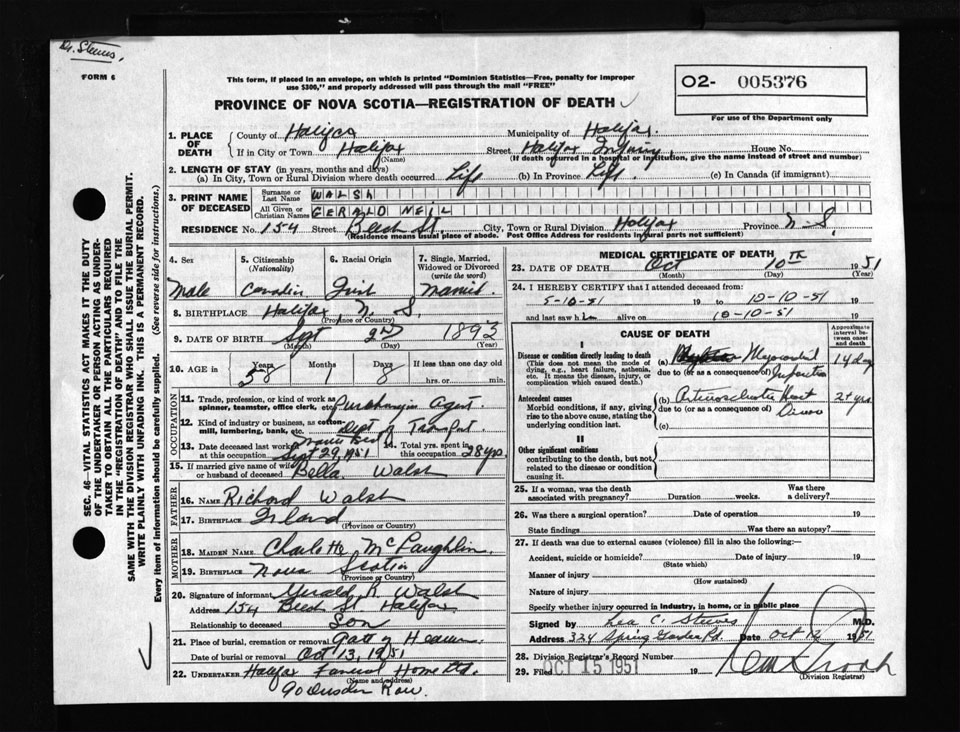 Dr. Steeves,
FORM 6
This form, if placed in an envelope, on which is printed "Dominion Statistics—Free, penalty for improper
use $300," and properly addressed will pass through the mail "FREE"
PROVINCE OF NOVA SCOTIA—REGISTRATION OF DEATH
O2- 005376
For use of the Department only
1. PLACE OF DEATH
County of Halifax Municipality of Halifax.
If in City or Town Halifax (Name) Street Halifax Infirmary House No.
(If death occurred in a hospital or institution, give the name instead of street and number)
2. LENGTH OF STAY (in years, months and days)
(a) In City, Town or Rural Division where death occurred Life (b) In Province Life. (c) In Canada (if immigrant)
3. PRINT NAME OF DECEASED
Surname or Last Name WALSH
All Given or Christian Names GERALD NEIL
RESIDENCE No. 154 Street Beech St. City, Town or Rural Division Halifax Province N.S.
(Residence means usual place of abode. Post Office Address for residents in rural parts not sufficient)
4. Sex Male
5. Citizenship (Nationality) Canadian
6. Racial Origin Irish
7. Single, Married, Widowed or Divorced (write the word) Married.
8. BIRTHPLACE Halifax, N. S (Province or Country)
9. DATE OF BIRTH Sept 2ND 1893
(Month) (Day) (Year)
10. AGE in Years 58 Months 1 Days 8 If less than one day
hrs. or min.
OCCUPATION
11. Trade, profession, or kind of work as spinner, teamster, office clerk, etc. Purchasing Agent.
12. Kind of industry or business, as cotton-mill, lumbering, bank, etc. Dept of Transport
13. Date deceased last worked at this occupation Sept 29, 1951
14. Total yrs. spent in this occupation 28 yrs.
15. If married give name of wife or husband of deceased Bella Walsh
FATHER
16. NAME Richard Walsh
17. BIRTHPLACE Ireland (Province or Country)
MOTHER
18. MAIDEN NAME Charlotte McLaughlin.
19. BIRTHPLACE Nova Scotia (Province or Country)
20. Signature of informant Gerald R. Walsh
Address 154 Beech St Halifax
Relationship to deceased Son
21. Place of burial, cremation or removal Gate of Heaven.
Date of burial or removal Oct 13, 1951
22. UNDERTAKER Halifax Funeral Home Ltd.
(Name and address)
90 Dresden Row.
MEDICAL CERTIFICATE OF DEATH
23. DATE OF DEATH Oct 10TH 1951
(Month) (Day) (Year)
24. I HEREBY CERTIFY that I attended deceased from:
5-10-51 19 to 10-10-51 19
and last saw him alive on 10-10-51 19
CAUSE OF DEATH
Approximate interval between onset and death
I
Disease or condition directly leading to death
(This does not mean the mode of dying, e.g., heart failure, asthenia, etc. It means the disease, injury, or complication which caused death.)
(a) Myocardial 14 days
due to (or as a consequence of) Infarction
Antecedent causes
Morbid conditions, if any, giving rise to the above cause, stating the underlying condition last.
(b) Arteriosclerotic Heart 2+ yrs.
due to (or as a consequence of) Disease
(c)
II
Other significant conditions
contributing to the death, but not related to the disease or condition causing it.
25. If a woman, was the death associated with pregnancy? Duration weeks. Was there a delivery?
26. Was there a surgical operation? Date of operation 19
State findings Was there an autopsy?
27. If death was due to external causes (violence) fill in also the following:—
Accident, suicide or homicide? Date of injury 19
(State which)
Manner of injury
(How sustained)
Nature of injury
Specify whether injury occurred in industry, in home, or in public place
Signed by Lea C. Steeves M.D.
Address 324 Spring Garden Rd. Date Oct 12 1951
28. Division Registrar's Record Number
29. Filed OCT 15 1951 19
(Division Registrar)
SEC. 46—VITAL STATISTICS ACT MAKES IT THE DUTY
OF THE UNDERTAKER OR PERSON ACTING AS UNDER-
TAKER TO OBTAIN ALL THE PARTICULARS REQUIRED
IN THE "REGISTRATION OF DEATH" AND TO FILE THE
SAME WITH THE DIVISION REGISTRAR WHO SHALL ISSUE THE BURIAL PERMIT.
WRITE PLAINLY WITH UNFADING INK. THIS IS A PERMANENT RECORD.
Every item of information should be carefully supplied. (See reverse side for instructions.)